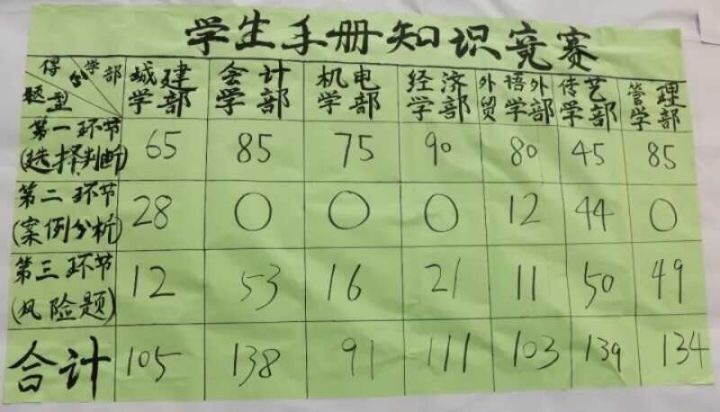 学生手册知识竞赛
得分 学部 题型 城建学部 会计学部 机电学部 经济学部 外语外贸学部 传艺学部 管理学部
第一环节(选择判断) 65 85 75 90 80 45 85
第二环节(案例分析) 28 0 0 0 12 44 0
第三环节(风险题) 12 53 16 21 11 50 49
合计 105 138 91 111 103 139 134